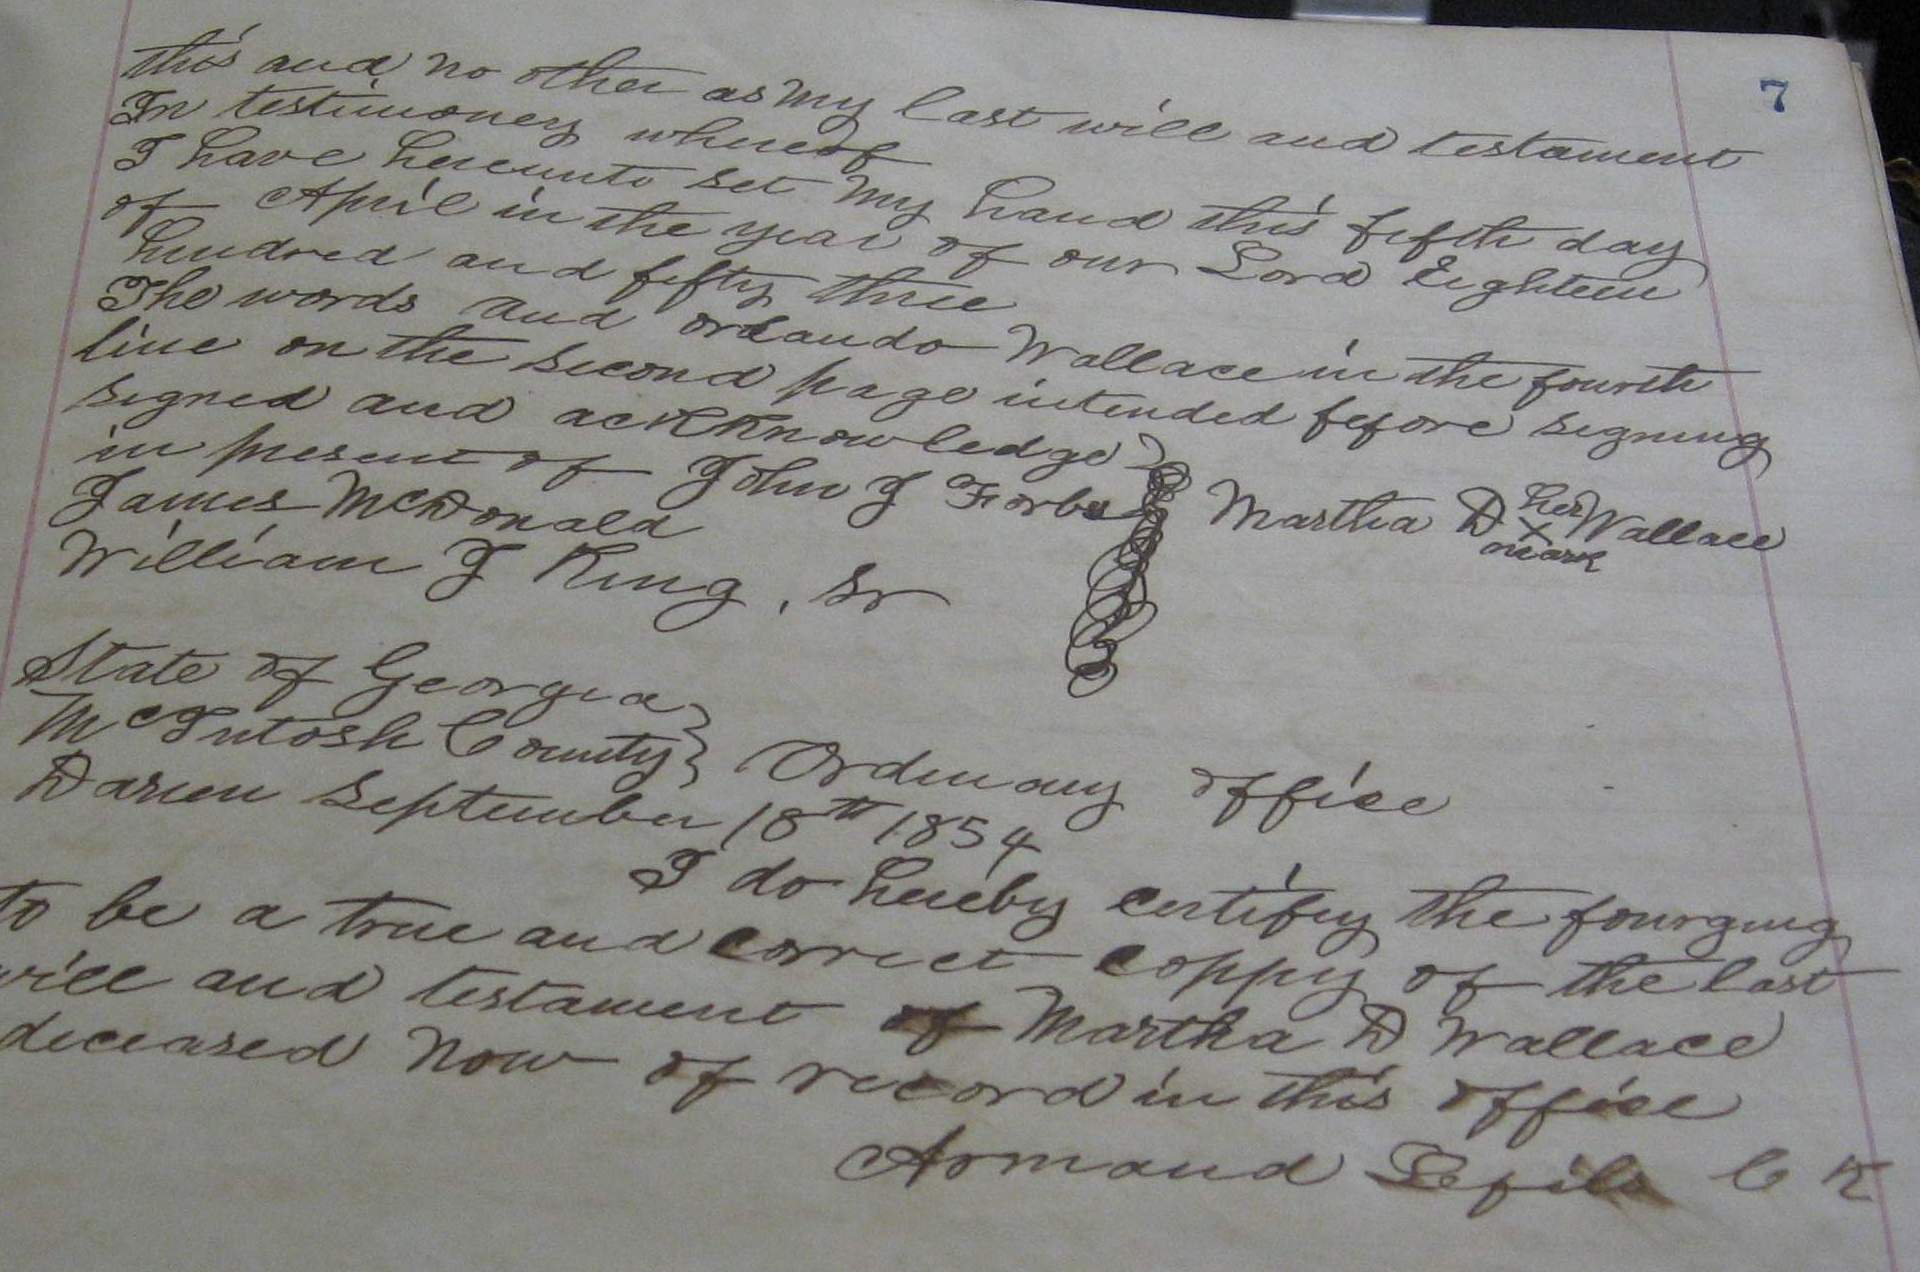 7
this and no other as my last will and testament
In testimoney whereof
I have hereunto set my hand this fifth day
of April in the year of our Lord Eighteen
hundred and fifty three
The words and orlando Wallace in the fourth
line on the second page intended before signing
signed and ackknowledge
in present of John J Forbes Martha D her Wallace
X
mark
James McDonald
William J King, Sr
State of Georgia
McIntosh County Ordinary office
Darien September 18th 1854
I do hereby certifiy the fourging
to be a true and correct coppy of the last
will and testament of Martha D Wallace
deceased now of record in this office
Armand Lefils C K